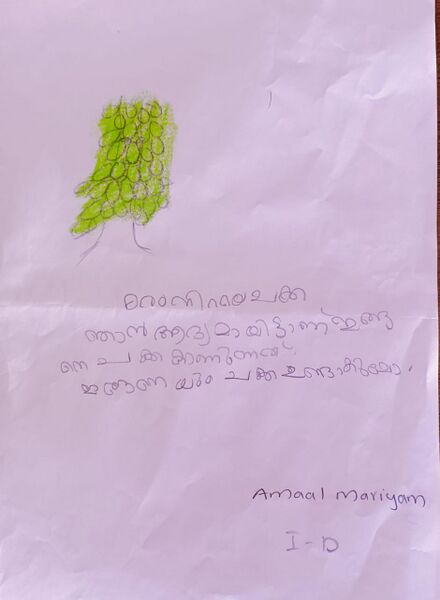 മരംനിറയെ ചക്ക
ഞാൻ ആദ്യമായിട്ടാണ് ഇങ്ങ
നെ ചക്ക കാണുന്നത്.
ഇത്രണയും ചക്ക ഉണ്ടാകുമോ.
Amaal Mariyam
I-D